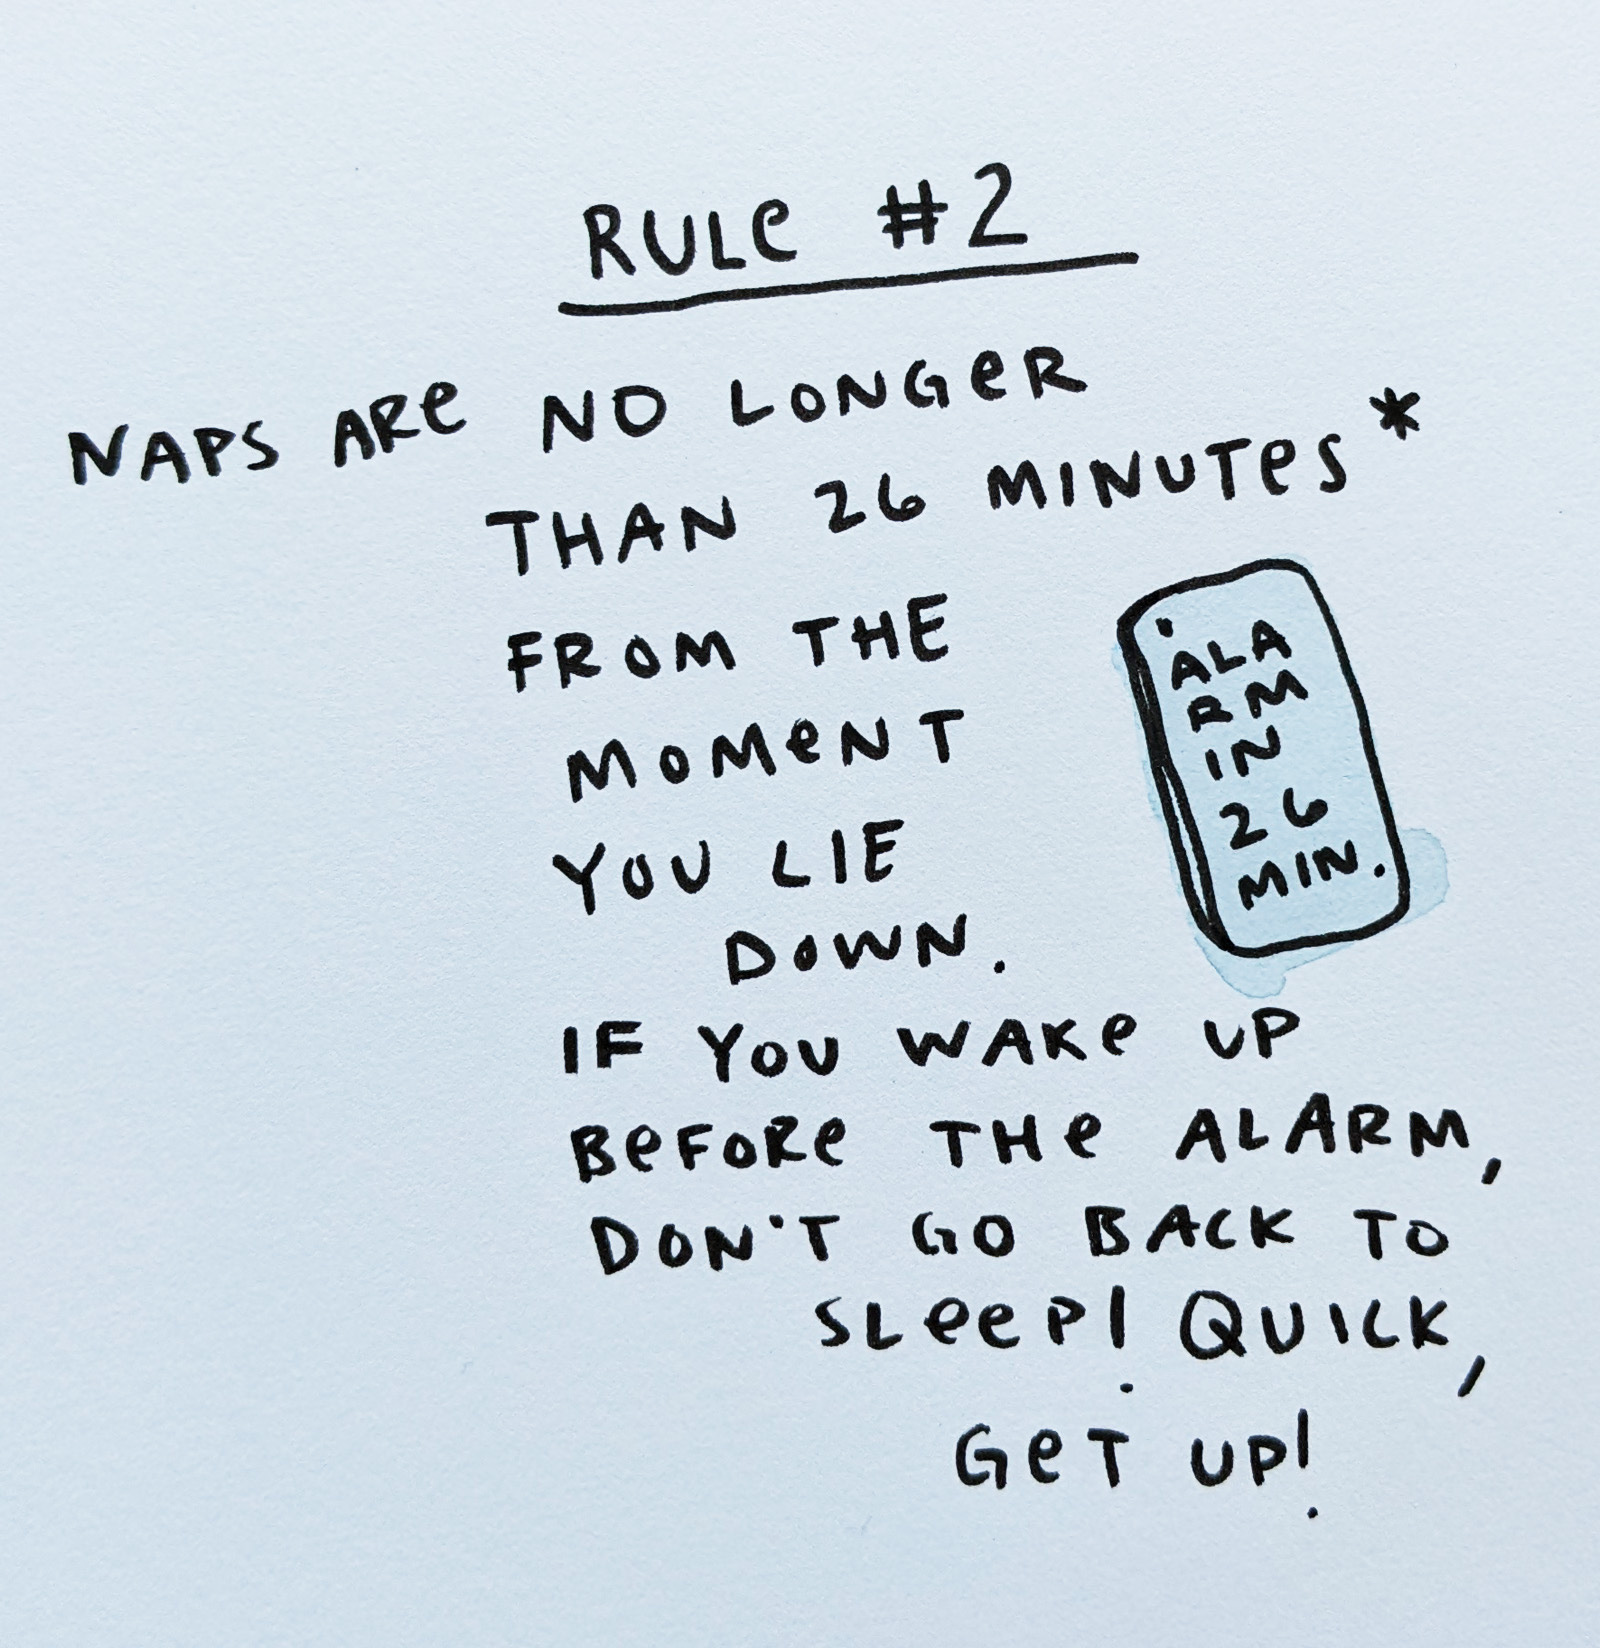 RULe #2
NAPS ARe NO LONGeR
THAN 26 MINUTeS*
FROM THE
MOMeNT
YOU LIE
DOWN.
ALA
RM
IN
26
MIN.
IF YOU WAKe UP
BeFORe THe ALARM,
DON'T GO BACK TO
SLeeP! QUICK,
GeT UP!